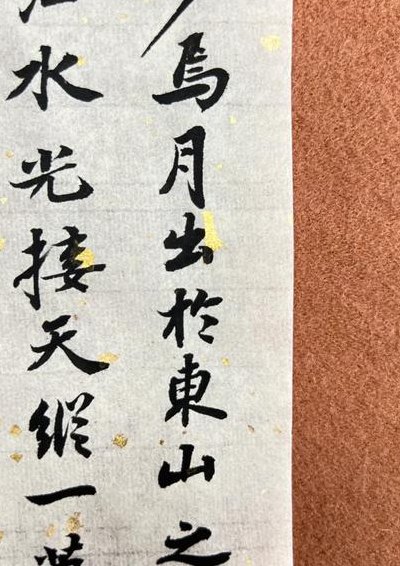 焉月出於東山之
江水光接天縱一